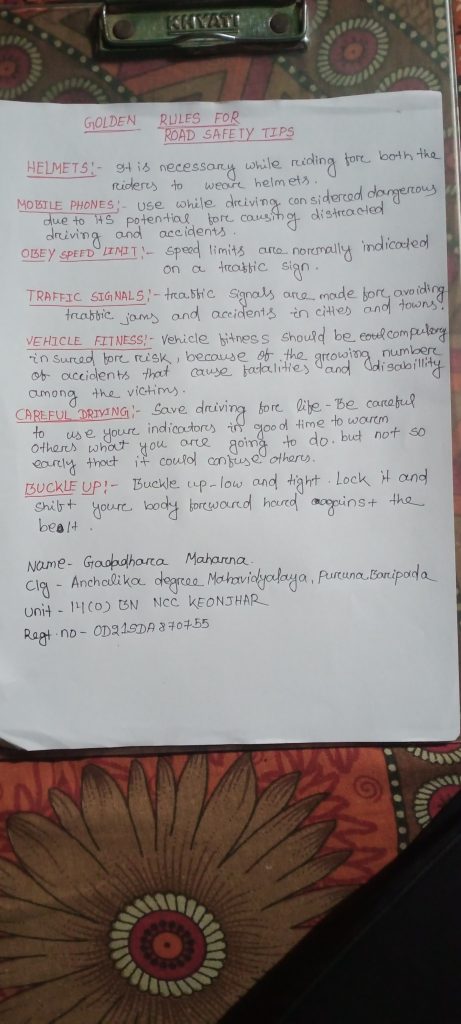 KHYATI
GOLDEN RULES FOR
ROAD SAFETY TIPS
HELMETS:- It is necessary while riding fore both the
riders to weare helmets.
MOBILE PHONES:- Use while driving considered dangerous
due to its potential fore causing distracted
driving and accidents.
OBEY SPEED LIMIT:- Speed limits are normally indicated
on a traffic sign.
TRAFFIC SIGNALS:- traffic signals are made fore avoiding
traffic jams and accidents in cities and towns.
VEHICLE FITNESS:- Vehicle fitness should be compulsory
insured fore risk, because of the growing number
of accidents that cause fatalities and disability
among the victims.
CAREFUL DRIVING:- Save driving fore life - Be careful
to use youre indicators in good time to warm
others what you are going to do. but not so
early that it could confuse others.
BUCKLE UP:- Buckle up-low and tight. Lock it and
shift youre body foreward hard against the
beslt.
Name- Gadadhara Maharna
Clg - Anchalika degree Mahavidyalaya, Puruna Baripada
Unit - 14(O) BN NCC KEONJHAR
Regt. no - OD21SDA870755